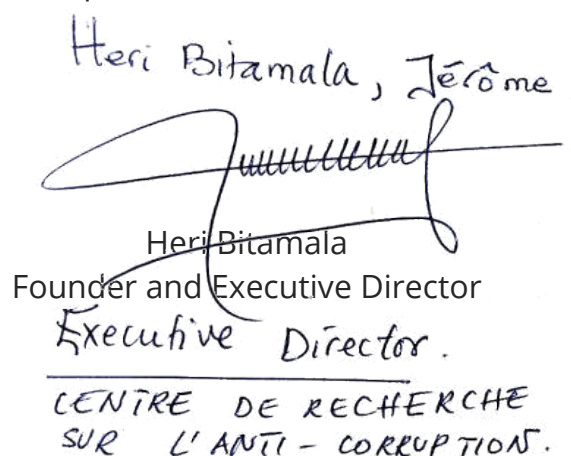 Heri Bitamala, Jérôme
Heri Bitamala
Founder and Executive Director
Executive Director.
CENTRE DE RECHERCHE
SUR L'ANTI-CORRUPTION.